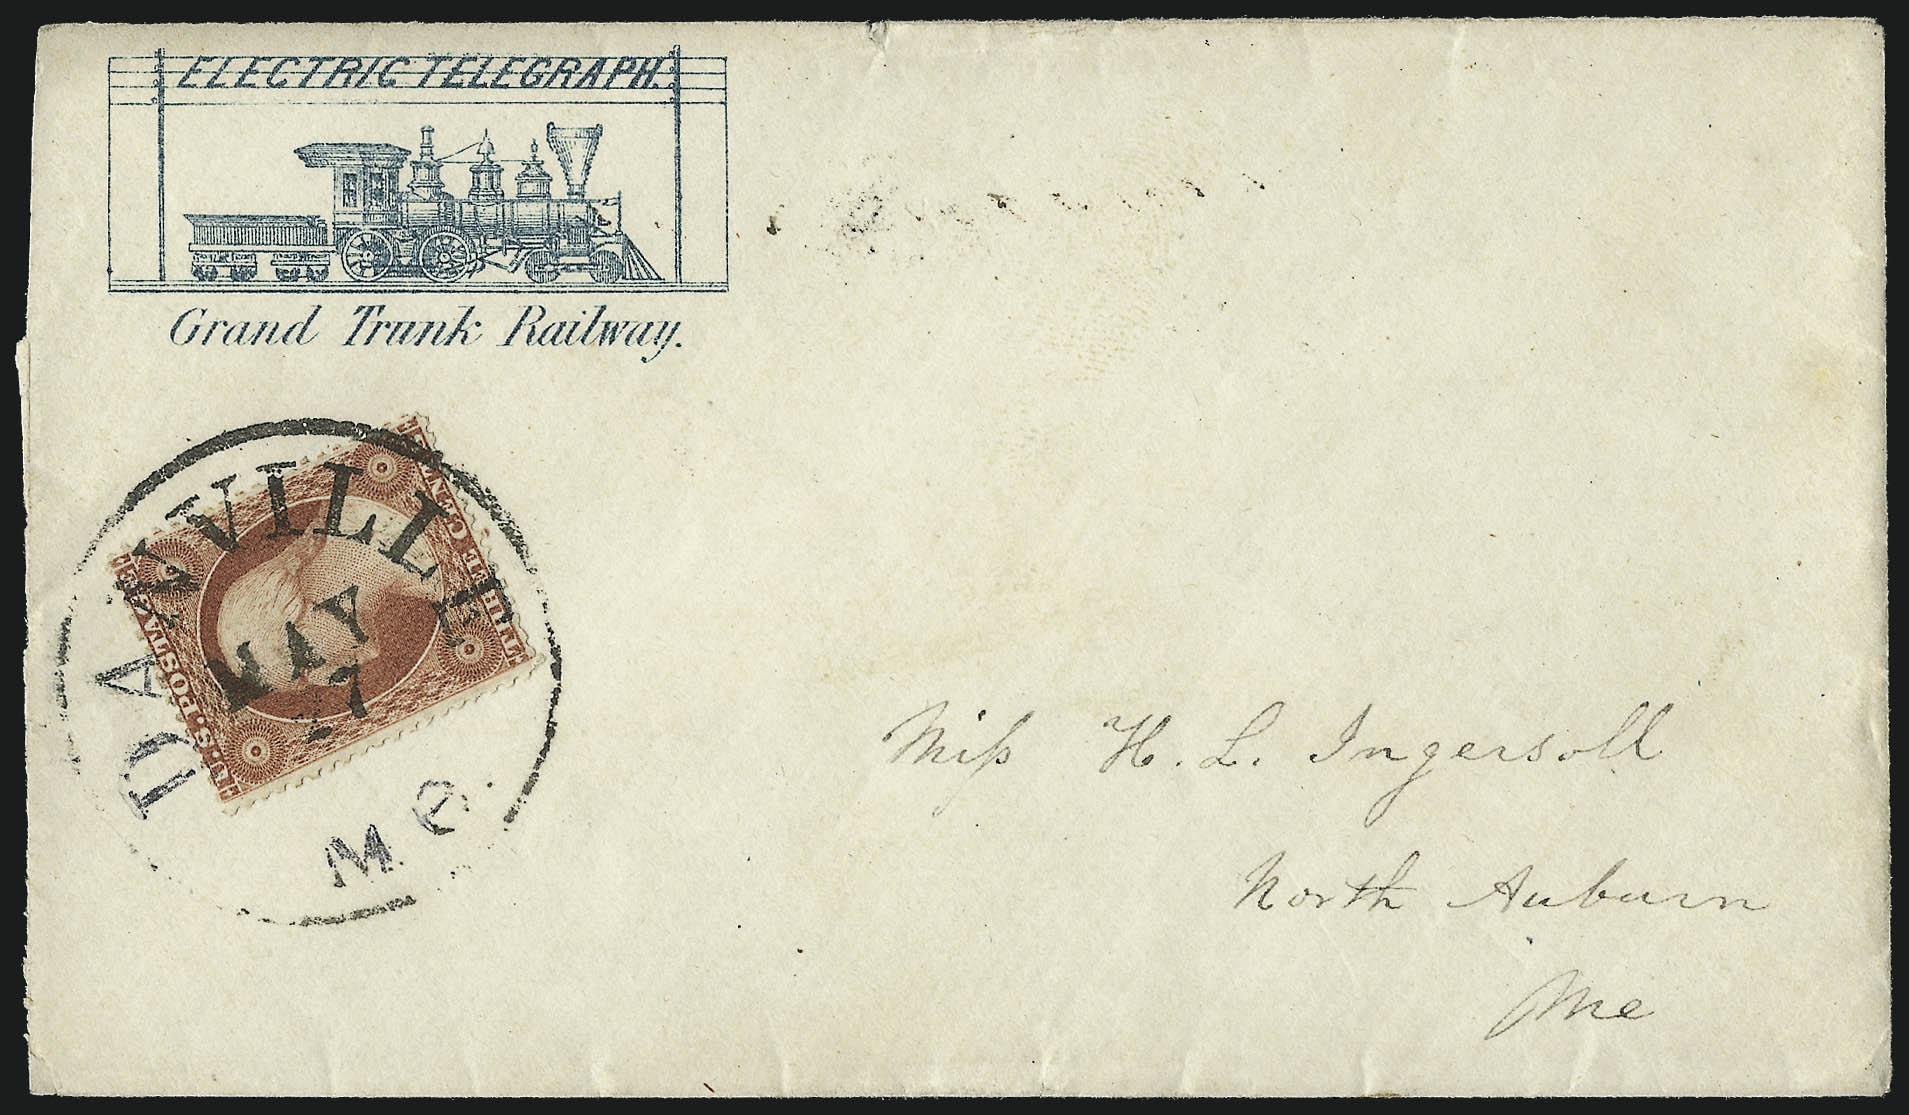 ELECTRIC TELEGRAPH.
Grand Trunk Railway.
DANVILLE
MAY
27
Me.
THREE CENTS
U.S. POSTAGE
Miss H. L. Ingersoll
North Auburn
Me